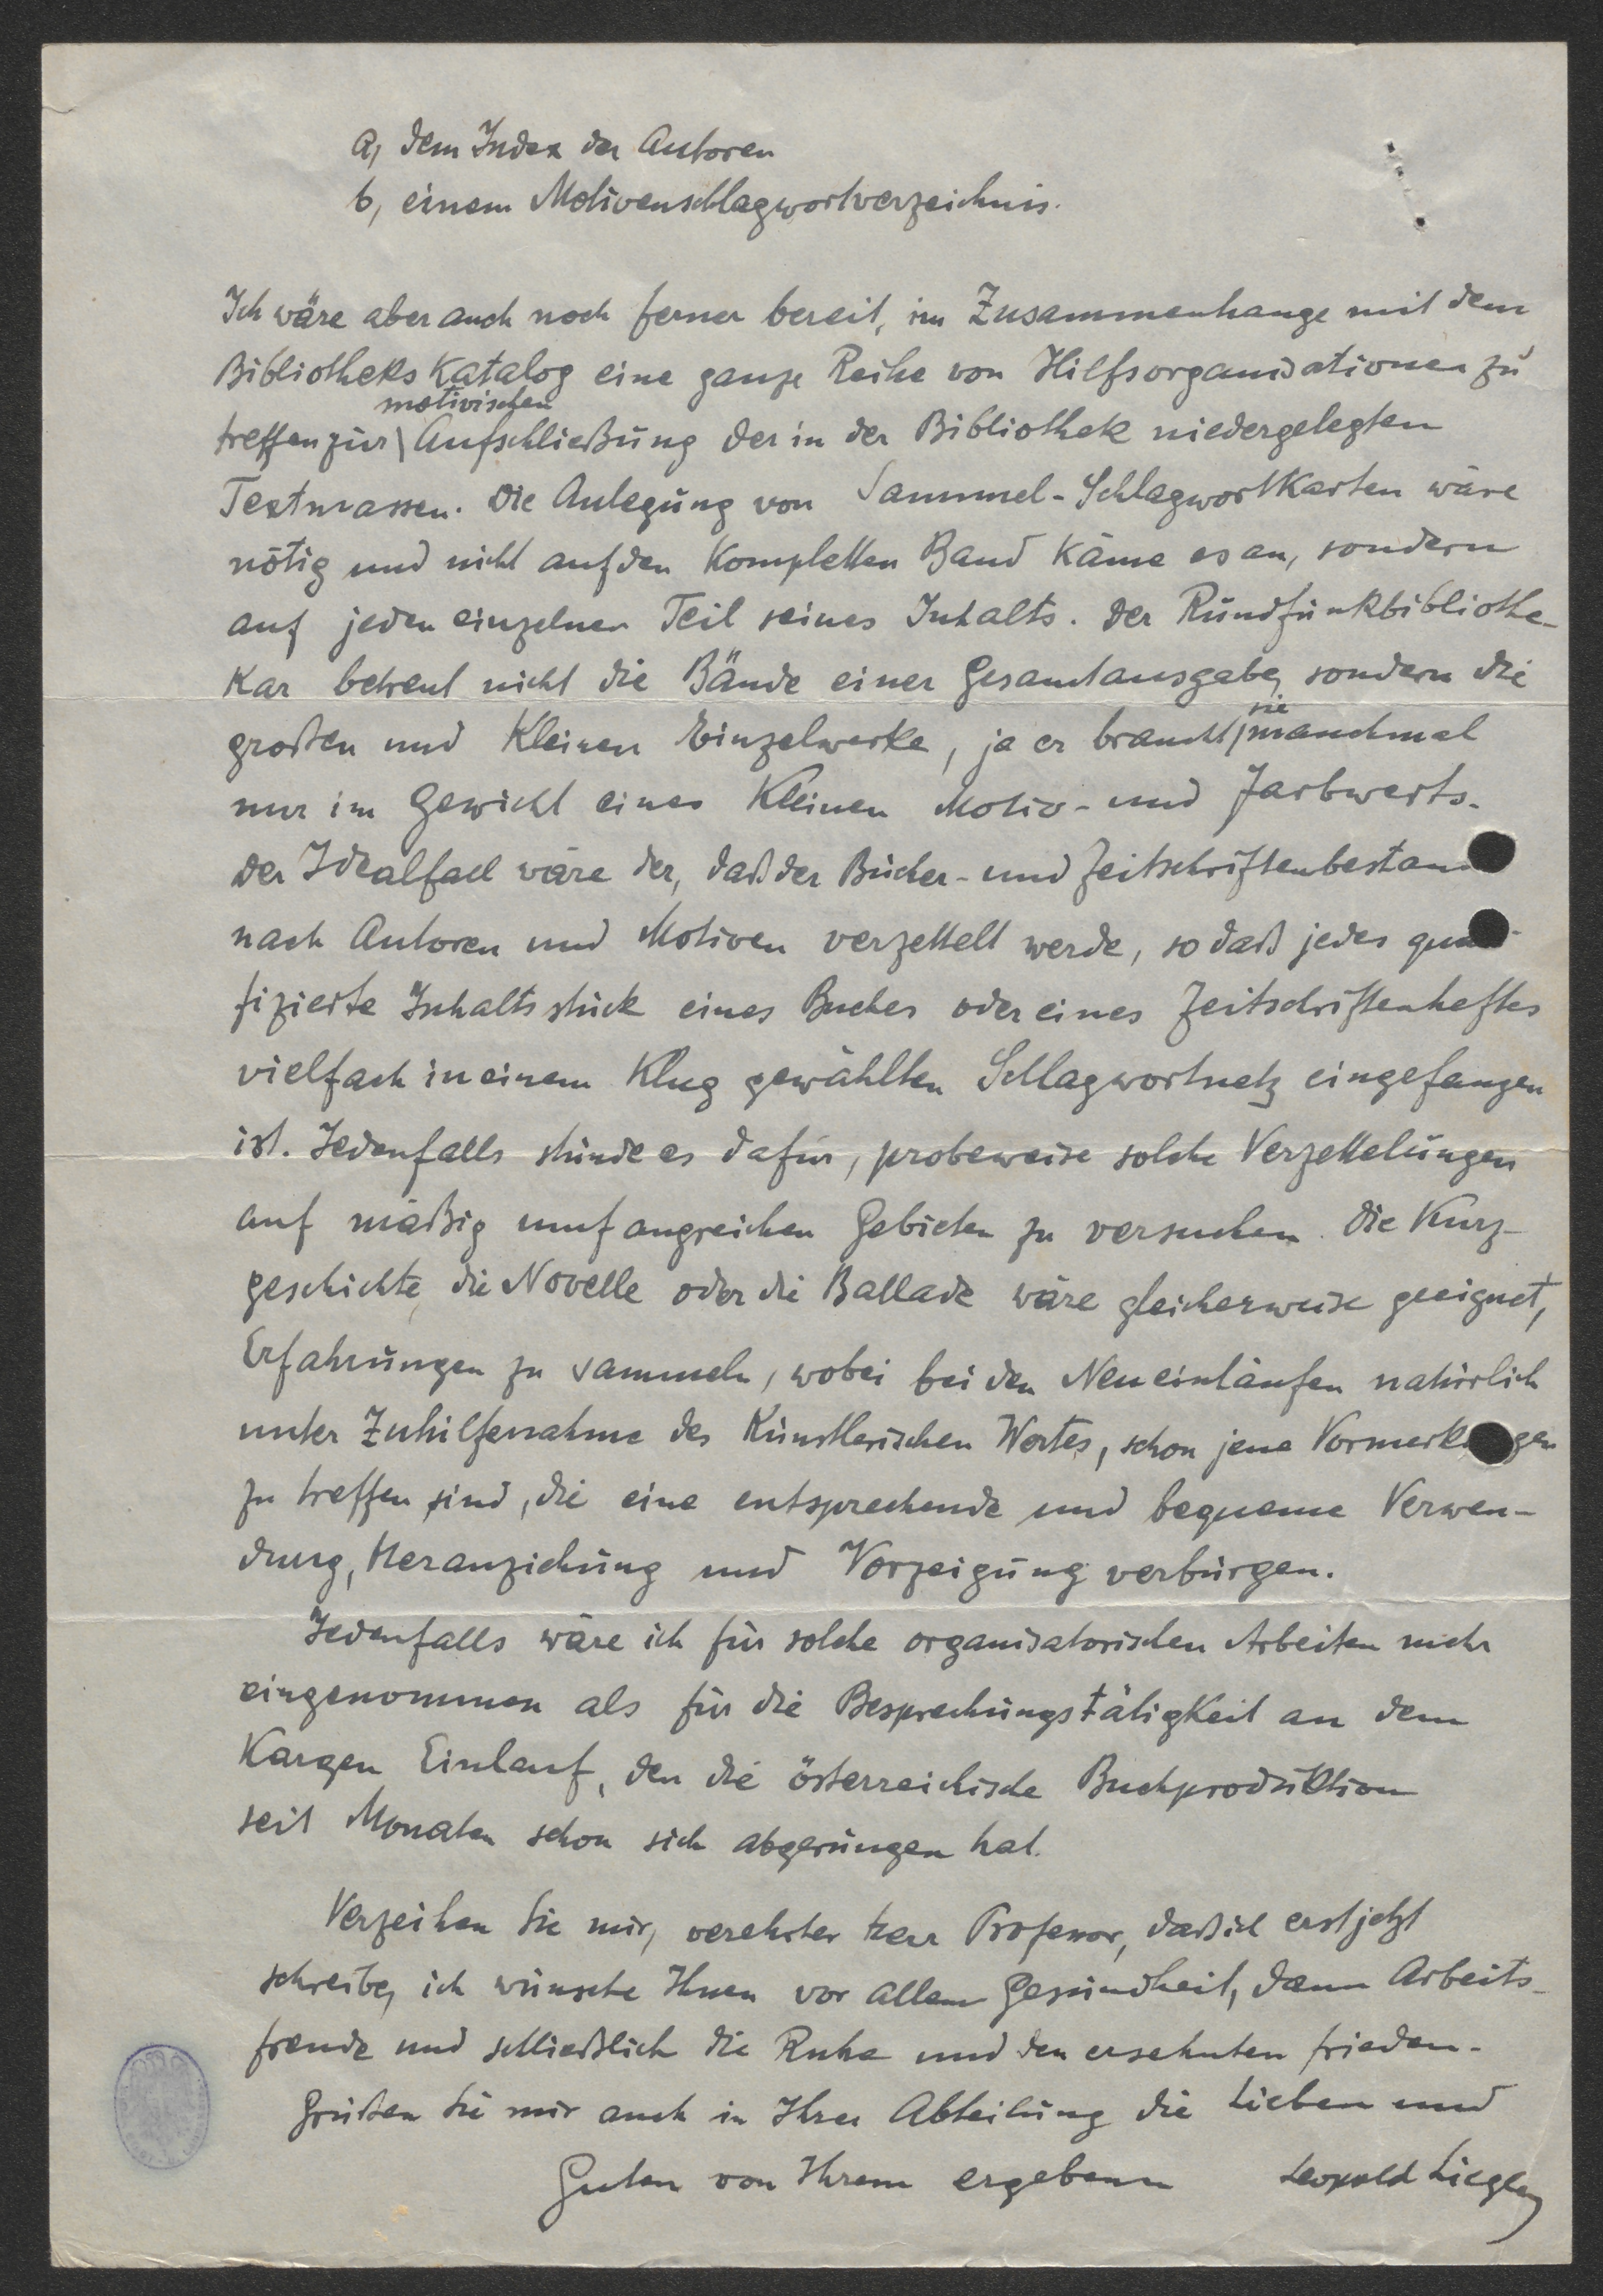 a, dem Index der Autoren
b, einem Motivenschlagwortverzeichnis.
Ich wäre aber auch noch ferner bereit, im Zusammenhange mit dem
Bibliotheks Katalog eine ganze Reihe von Hilfsorganisationen zu
motivischen
treffen zur Aufschließung der in der Bibliothek niedergelegten
Textmassen. Die Anlegung von Sammel-Schlagwortkarten wäre
nötig und nicht auf den kompletten Band käme es an, sondern
auf jeden einzelnen Teil seines Inhalts. Der Rundfunkbibliothe-
kar betreut nicht die Bände einer Gesamtausgabe, sondern die
sie
großen und kleinen Einzelwerke, ja er braucht manchmal
nur im Gewicht eines kleinen Motiv- und Farbwerts.
Der Idealfall wäre der, daß der Bücher- und Zeitschriftenbestand
nach Autoren und Motiven verzettelt werde, so daß jedes
fizierte Inhaltsstück eines Buches oder eines Zeitschriftenheftes
vielfach in einem klug gewählten Schlagwortnetz eingefangen
ist. Jedenfalls stünde es dafür, probeweise solche Verzettelungen
auf mäßig umfangreichen Gebieten zu versuchen. Die Kurz-
geschichte, die Novelle oder die Ballade wäre gleicherweise geeignet,
Erfahrungen zu sammeln, wobei bei den Neueinläufen natürlich
unter Zuhilfenahme des künstlerischen Wortes, schon jene Vormerkungen
zu treffen sind, die eine entsprechende und bequeme Verwen-
dung, Heranziehung und Vorzeigung verbürgen.
Jedenfalls wäre ich für solche organisatorischen Arbeiten mehr
eingenommen als für die Besprechungstätigkeit an dem
kargen Einlauf, den die österreichische Buchproduktion
seit Monaten schon sich abgerungen hat.
Verzeihen Sie mir, verehrter Herr Professor, daß ich erst jetzt
schreibe, ich wünsche Ihnen vor allem Gesundheit, dann Arbeits-
freude und schließlich die Ruhe und den ersehnten Frieden.
Grüßen Sie mir auch in Ihrer Abteilung die Lieben und
Guten von Ihrem ergebenen Leopold Liegler